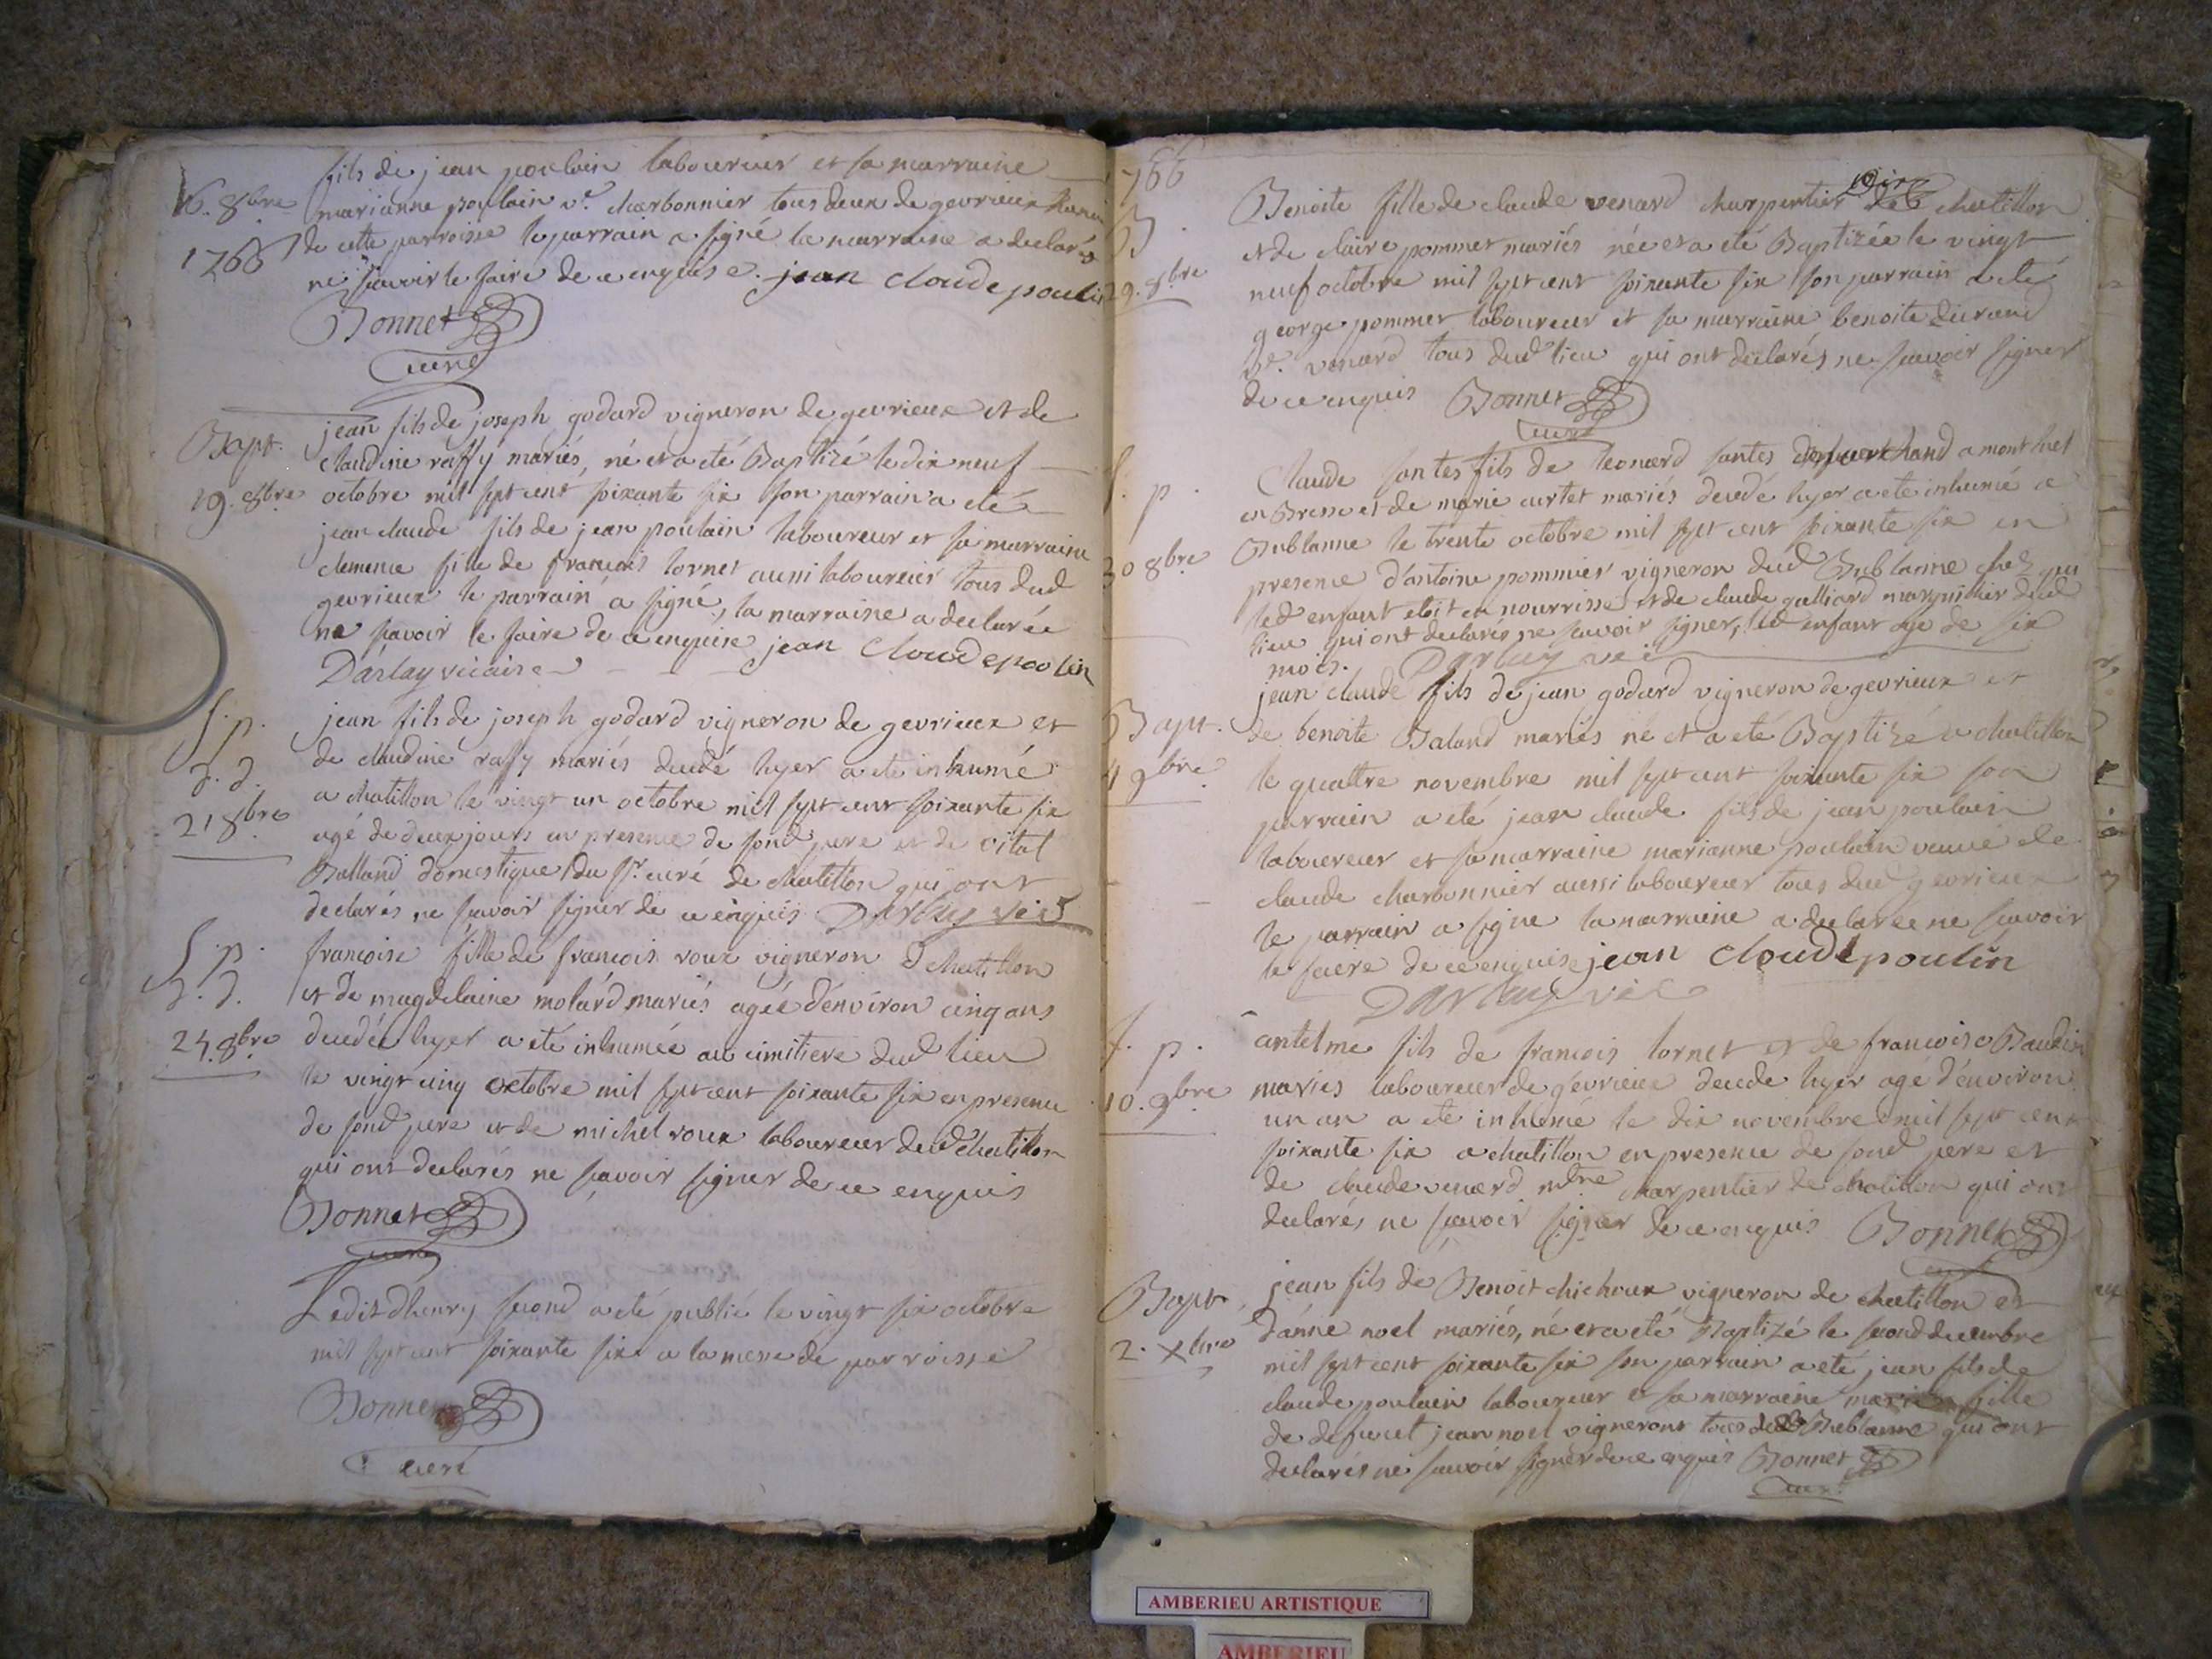 fils de jean poulain laboureur et sa marraine
16. 8bre marianne poulain ve. charbonnier tous deux de gevrieux
1766 de cette parroisse le parrain a signé la marraine a declarés
ne sçavoir le faire de ce enquise. jean claude poulin
Bonnet
curé
jean fils de joseph godard vigneron de gevrieux et de
Bapt. claudine raffy mariés, né et a eté Baptizé le dix neuf
19. 8bre octobre mil sept cent soixante six son parrain a eté
jean claude fils de jean poulain laboureur et sa marraine
clemence fille de francois tornet aussi laboureur tous dud
gevrieux le parrain a signé, la marraine a declarée
ne savoir le faire de ce enquise jean claude poulin
Darlay vicaire
S. p. jean fils de joseph godard vigneron de gevrieux et
d. d. de claudine raffy mariés decedé hyer a eté inhumé
21 8bre a chatillon le vingt un octobre mil sept cent soixante six
agé de deux jours en presence de sond pere et de vital
Balland domestique du Sr. curé de chatillon qui ont
declarés ne sçavoir signer de ce enquis Darlay vice
S. p. francoise fille de francois roux vigneron d chatillon
d. d. et de magdelaine molard mariés agée d'environ cinq ans
25. 8bre decedée hyer a eté inhumée au cimitiere dud lieu
le vingt cinq octobre mil sept cent soixante six en presence
de sond pere et de michel roux laboureur dud chatillon
qui ont declarés ne sçavoir signer de ce enquis
Bonnet
curé
L'edit d'henry second a eté publié le vingt six octobre
mil sept cent soixante six a la messe de parroisse
Bonnet
curé
766
Benoite fille de claude venard charpentier de chatillon
B. et de claire pommet mariés née et a eté Baptizée le vingt
29. 8bre neuf octobre mil sept cent soixante six son parrain a eté
george pommet laboureur et sa marraine benoite durand
ve. venard tous dud lieu qui ont declarés ne sçavoir signer
de ce enquis Bonnet
curé
Claude santes fils de leonard santes marchand a mont luel
S. p. en Bresse et de marie curtet mariés decedé hyer a eté inhumé a
30 8bre Bublanne le trente octobre mil sept cent soixante six en
presence d'antoine pommier vigneron dud Bublanne chez qui
led enfant etoit en nourrisse et de claude galliard marguillier dud
lieu qui ont declarés ne sçavoir signer, led enfant agé de six
mois. Darlay vic
jean claude fils de jean godard vigneron de gevrieux et
Bapt. de benoite Baland mariés né et a eté Baptizé a chatillon
4 9bre le quattre novembre mil sept cent soixante six son
parrain a eté jean claude fils de jean poulain
laboureur et sa marraine marianne poulain veuve de
claude charbonnier aussi laboureur tous dud gevrieux
le parrain a signe la marraine a declaree ne sçavoir
le faire de ce enquise jean claude poulin
Darlay vic
S. p. antelme fils de francois tornet et de francoise Baudin
10. 9bre mariés laboureur de gevrieux decede hyer agé d'environ
un an a eté inhumé le dix novembre mil sept cent
soixante six a chatillon en presence de sond pere et
de claude venard mtre charpentier de chatillon qui ont
declarés ne sçavoir signer de ce enquis Bonnet
curé
jean fils de Benoit chichoux vigneron de chatillon et
Bapt. d'anne noel mariés, né et a eté Baptizé le second decembre
2. Xbre mil sept cent soixante six son parrain a eté jean fils de
claude poulain laboureur et sa marraine fille
de defunct jean noel vignerons tous de Bublanne qui ont
declarés ne sçavoir signer de ce enquis Bonnet
curé
AMBERIEU ARTISTIQUE
AMBERIEU